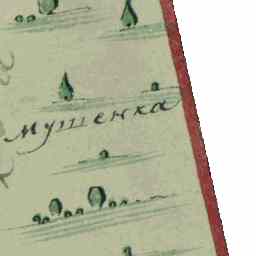 мушенка